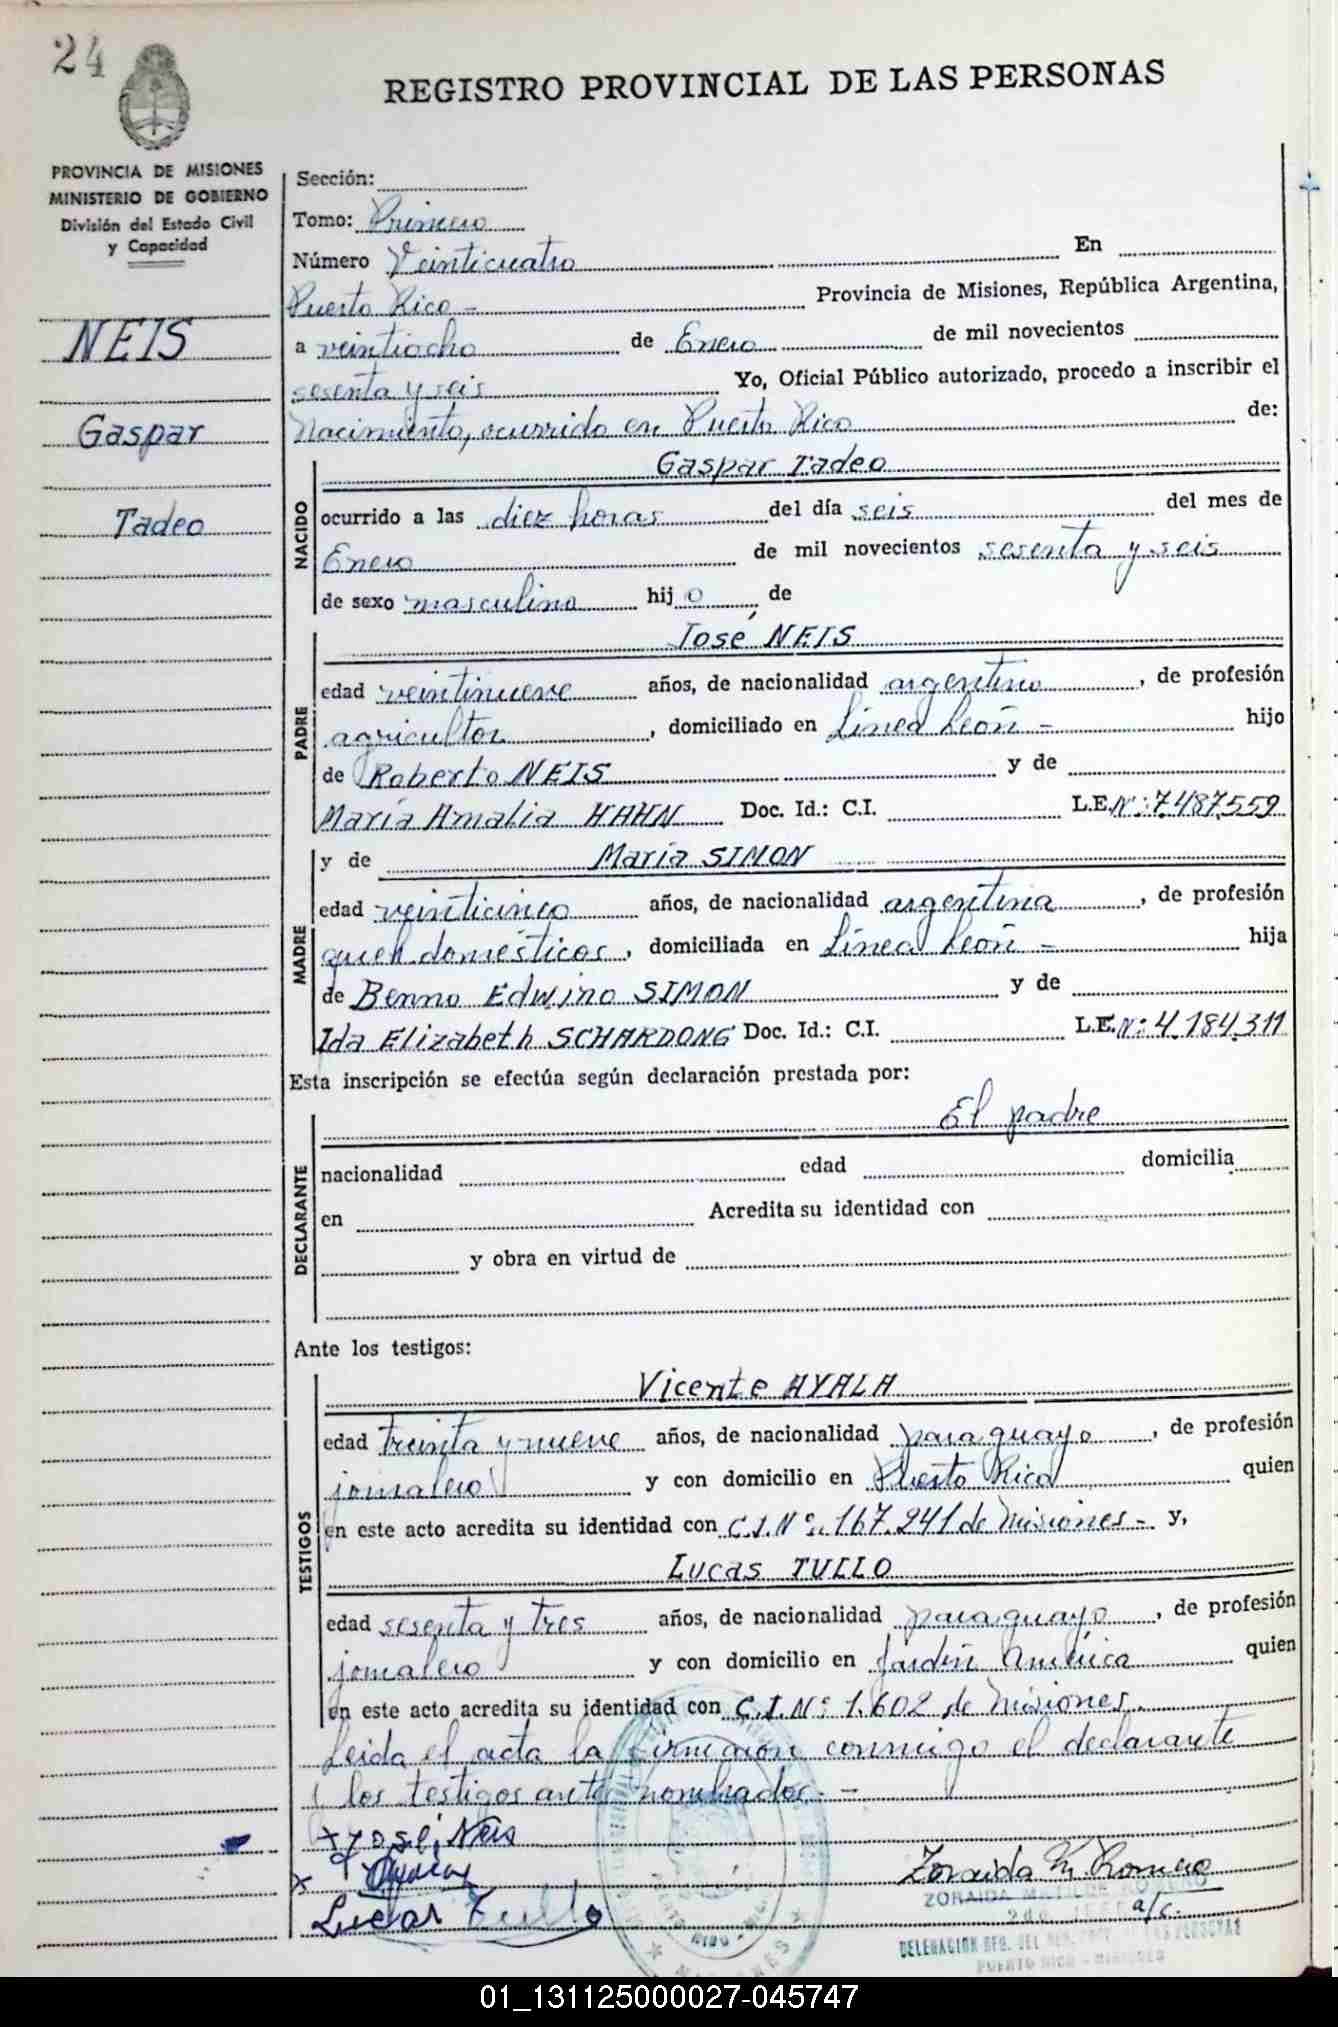 24
REGISTRO PROVINCIAL DE LAS PERSONAS
PROVINCIA DE MISIONES
MINISTERIO DE GOBIERNO
División del Estado Civil
y Capacidad
NEIS
Gaspar
Tadeo
Sección:
Tomo: Primero
Número Veinticuatro En
Puerto Rico - Provincia de Misiones, República Argentina,
a veintiocho de Enero de mil novecientos
sesenta y seis Yo, Oficial Público autorizado, procedo a inscribir el
Nacimiento, ocurrido en Puerto Rico de:
NACIDO
Gaspar Tadeo
ocurrido a las diez horas del día seis del mes de
Enero de mil novecientos sesenta y seis
de sexo masculino hijo de
PADRE
José NEIS
edad veintinueve años, de nacionalidad argentino, de profesión
agricultor, domiciliado en Línea León - hijo
de Roberto NEIS y de
María Amalia HAHN Doc. Id.: C.I. L.E. Nº: 7.487.559
MADRE
y de María SIMON
edad veinticinco años, de nacionalidad argentina, de profesión
queh. domésticos, domiciliada en Línea León - hija
de Benno Edwino SIMON y de
Ida Elizabeth SCHARDONG Doc. Id.: C.I. L.E. Nº: 4.184.311
Esta inscripción se efectúa según declaración prestada por:
DECLARANTE
El padre
nacionalidad edad domicilia
en Acredita su identidad con
y obra en virtud de
Ante los testigos:
TESTIGOS
Vicente AYALA
edad treinta y nueve años, de nacionalidad paraguayo, de profesión
jornalero y con domicilio en Puerto Rico quien
en este acto acredita su identidad con C.I. Nº: 167.241 de Misiones - y,
Lucas TULLO
edad sesenta y tres años, de nacionalidad paraguayo, de profesión
jornalero y con domicilio en Jardín América quien
en este acto acredita su identidad con C.I. Nº: 1.602 de Misiones.
Leida el acta la firman conmigo el declarante
y los testigos antes nombrados. -
x José Neis
x
Lucas Tullo
Zoraida M. Romero
ZORAIDA MATILDE ROMERO
a/c.
PUERTO RICO - MISIONES
01_131125000027-045747